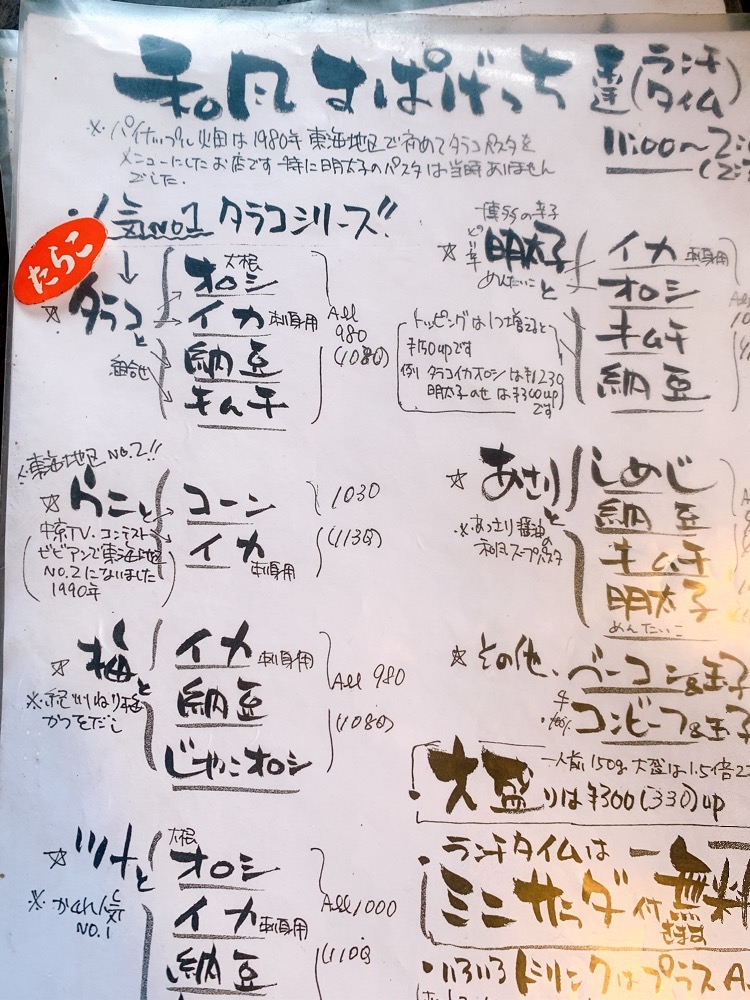 和風すぱげっち達
(ランチタイム)
11:00〜2:
※パイナップル畑は1980年東海地区で初めてタラコパスタを
メニューにしたお店です 特に明太子のパスタは当時ありません
でした.
・人気NO1 タラコシリーズ!!
たらこ
☆タラコと
組合せ
大根
オロシ
イカ 刺身用
納豆
キムチ
All
980
(1080)
博多の辛子
☆明太子と
めんたいこ
イカ 刺身用
オロシ
キムチ
納豆
トッピングは1つ増えると
¥150upです
例 タラコイカオロシは¥1230
明太子のせは¥300up
です
東海地区 NO.2!!
☆ウニと
中京TV.コンテスト
ビビアンで東海地区
NO.2になりました
1990年
コーン
イカ
刺身用
1030
(1130)
☆あさりと
※あっさり醤油の
和風スープパスタ
しめじ
納豆
キムチ
明太子
めんたいこ
☆梅と
※紀州ねり梅
かつをだし
イカ 刺身用
納豆
じゃこオロシ
All 980
(1080)
☆その他、
ベーコン&玉子
牛
100%
コンビーフ&玉子
・大盛
一人前150g 大盛は1.5倍
りは¥300(330)up
☆ツナと
※かくれ人気
NO.1
大根
オロシ
イカ 刺身用
納豆
All 1000
(1100)
・ランチタイムは
ミニサラダ付
無料
きます
・いろいろドリンクはプラス